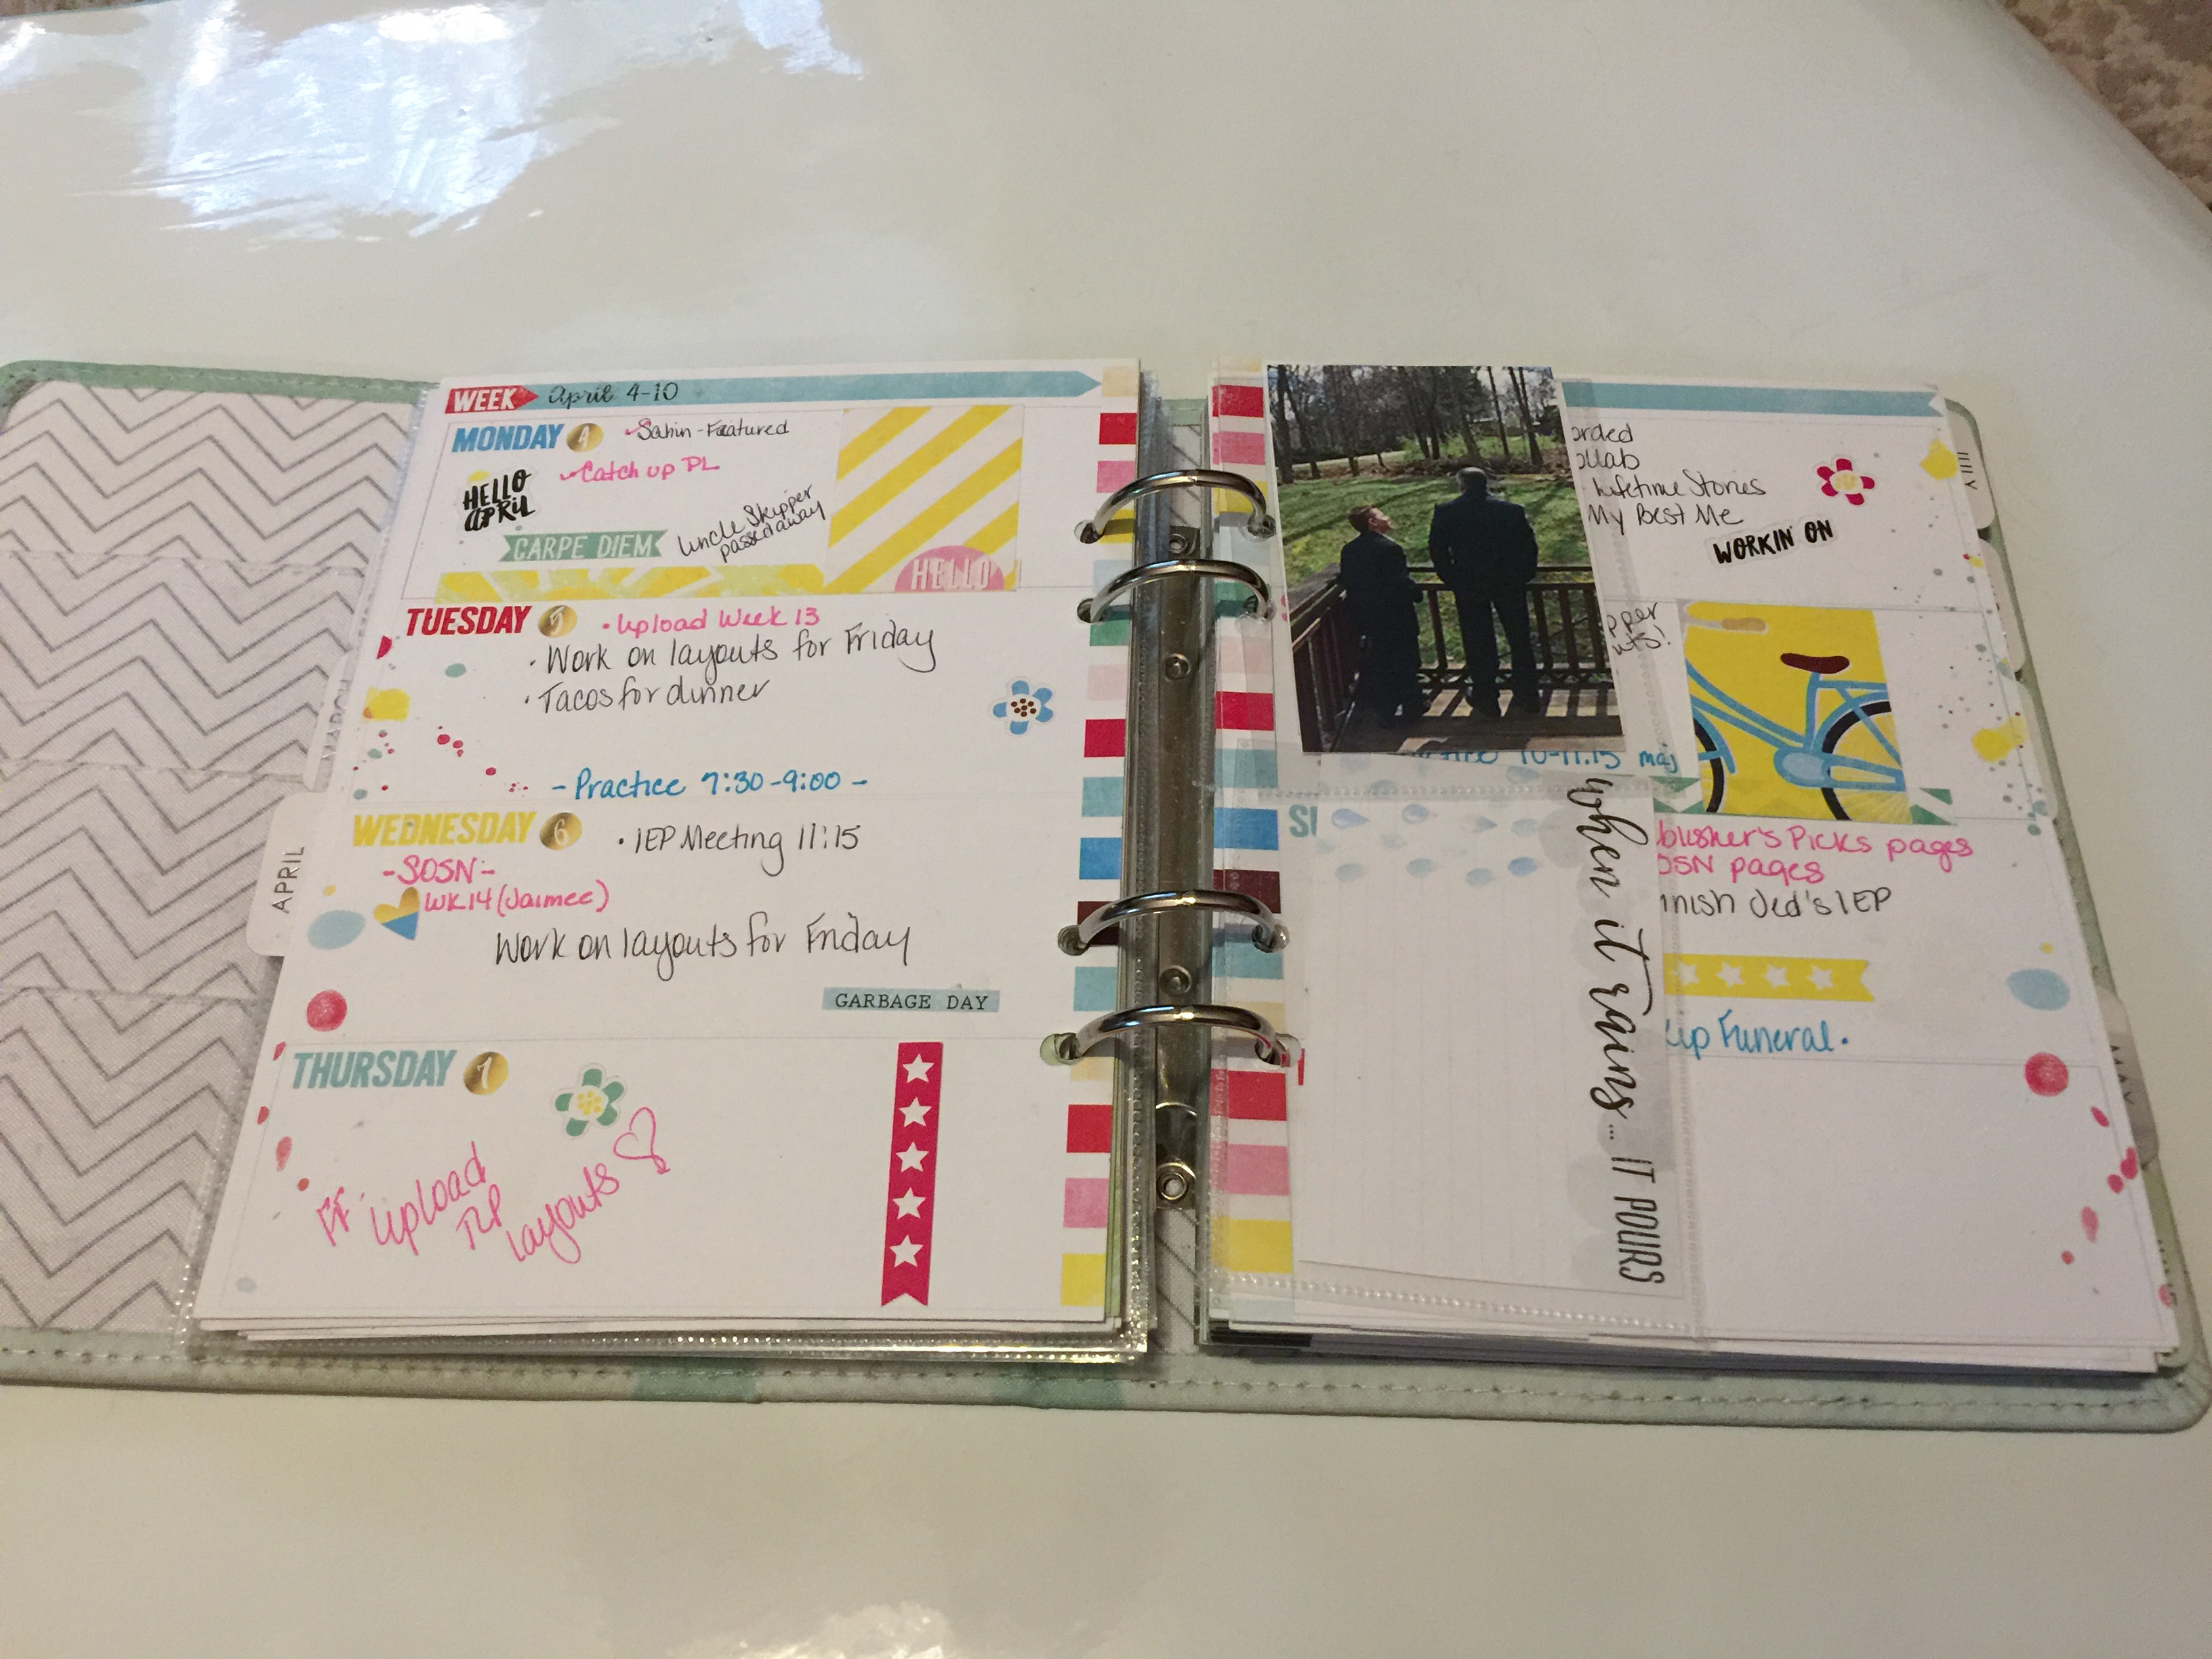 WEEK April 4-10
MONDAY 4
Sahin - Featured
Catch up PL
HELLO
APRIL
CARPE DIEM
Uncle Skipper
passed away
HELLO
TUESDAY 5
• Upload Week 13
• Work on layouts for Friday
• Tacos for dinner
- Practice 7:30-9:00 -
WEDNESDAY 6
• IEP Meeting 11:15
- SOSN -
WK 14 (Jaimee)
Work on layouts for Friday
GARBAGE DAY
APRIL
THURSDAY 7
Upload
TLP
layouts
orded
ollab
Lifetime Stories
My Best Me
WORKIN' ON
pper
10-11:15
SU
blisher's Picks pages
OSN pages
inish Jed's IEP
up Funeral.
when it rains... IT POURS
MAY